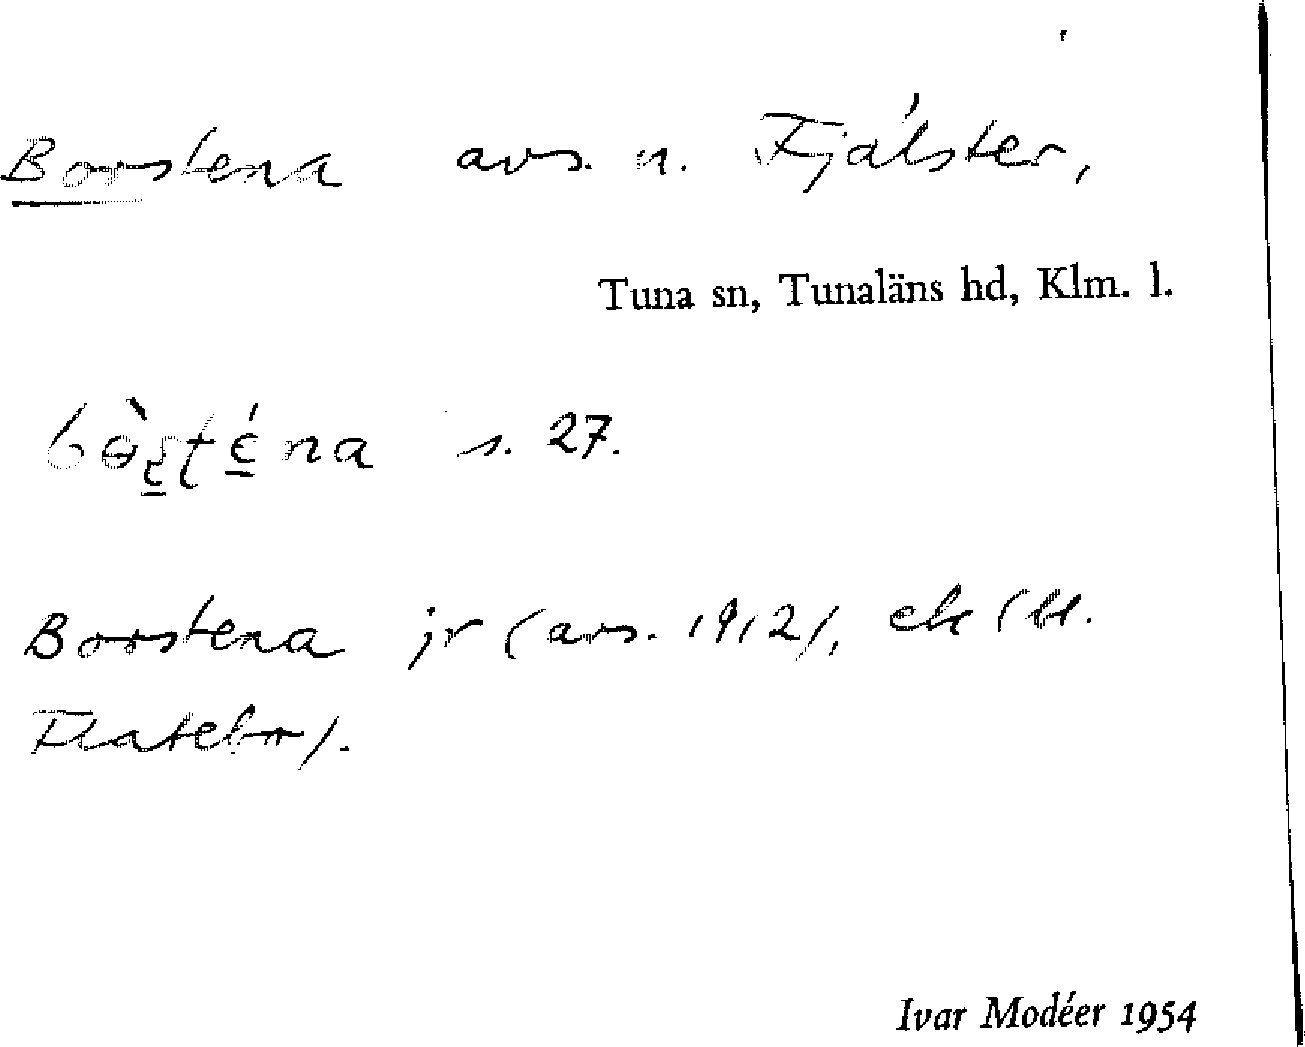 Borrstena avs. n. Fjälster,
Tuna sn, Tunaläns hd, Klm. l.
s. 27.
Borrstena jr (avs. 1912), ek (bl.
Flatebo).
Ivar Modéer 1954